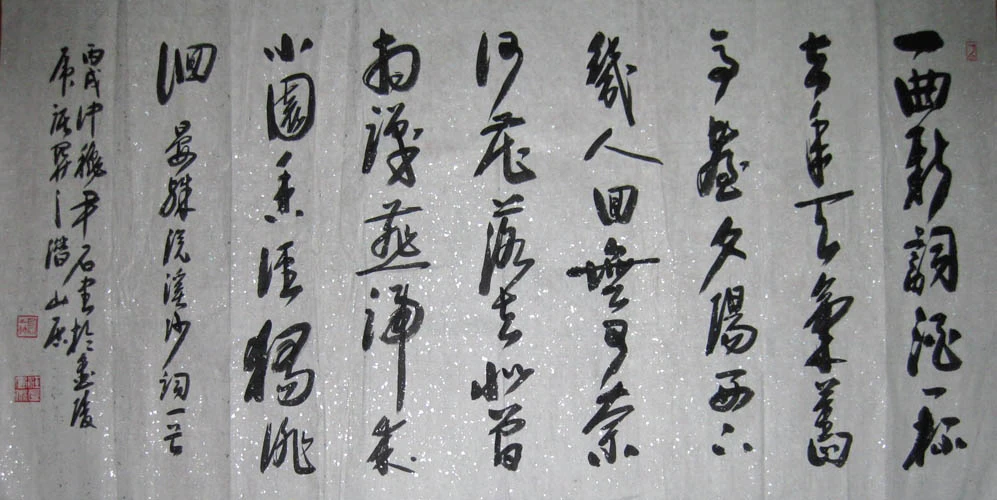 一曲新詞酒一杯
去年天氣舊
亭臺夕陽西下
幾人回無可奈
何花落去似曾
相識燕歸來
小園香徑獨徘
徊 晏殊浣溪沙詞一首
丙戌仲穐尹石書於金陵
虎踞關之潜山居